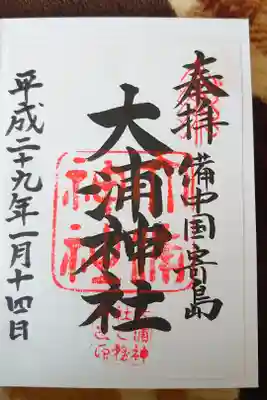 奉拝
備中国寄島
大浦神社
平成二十九年一月十四日